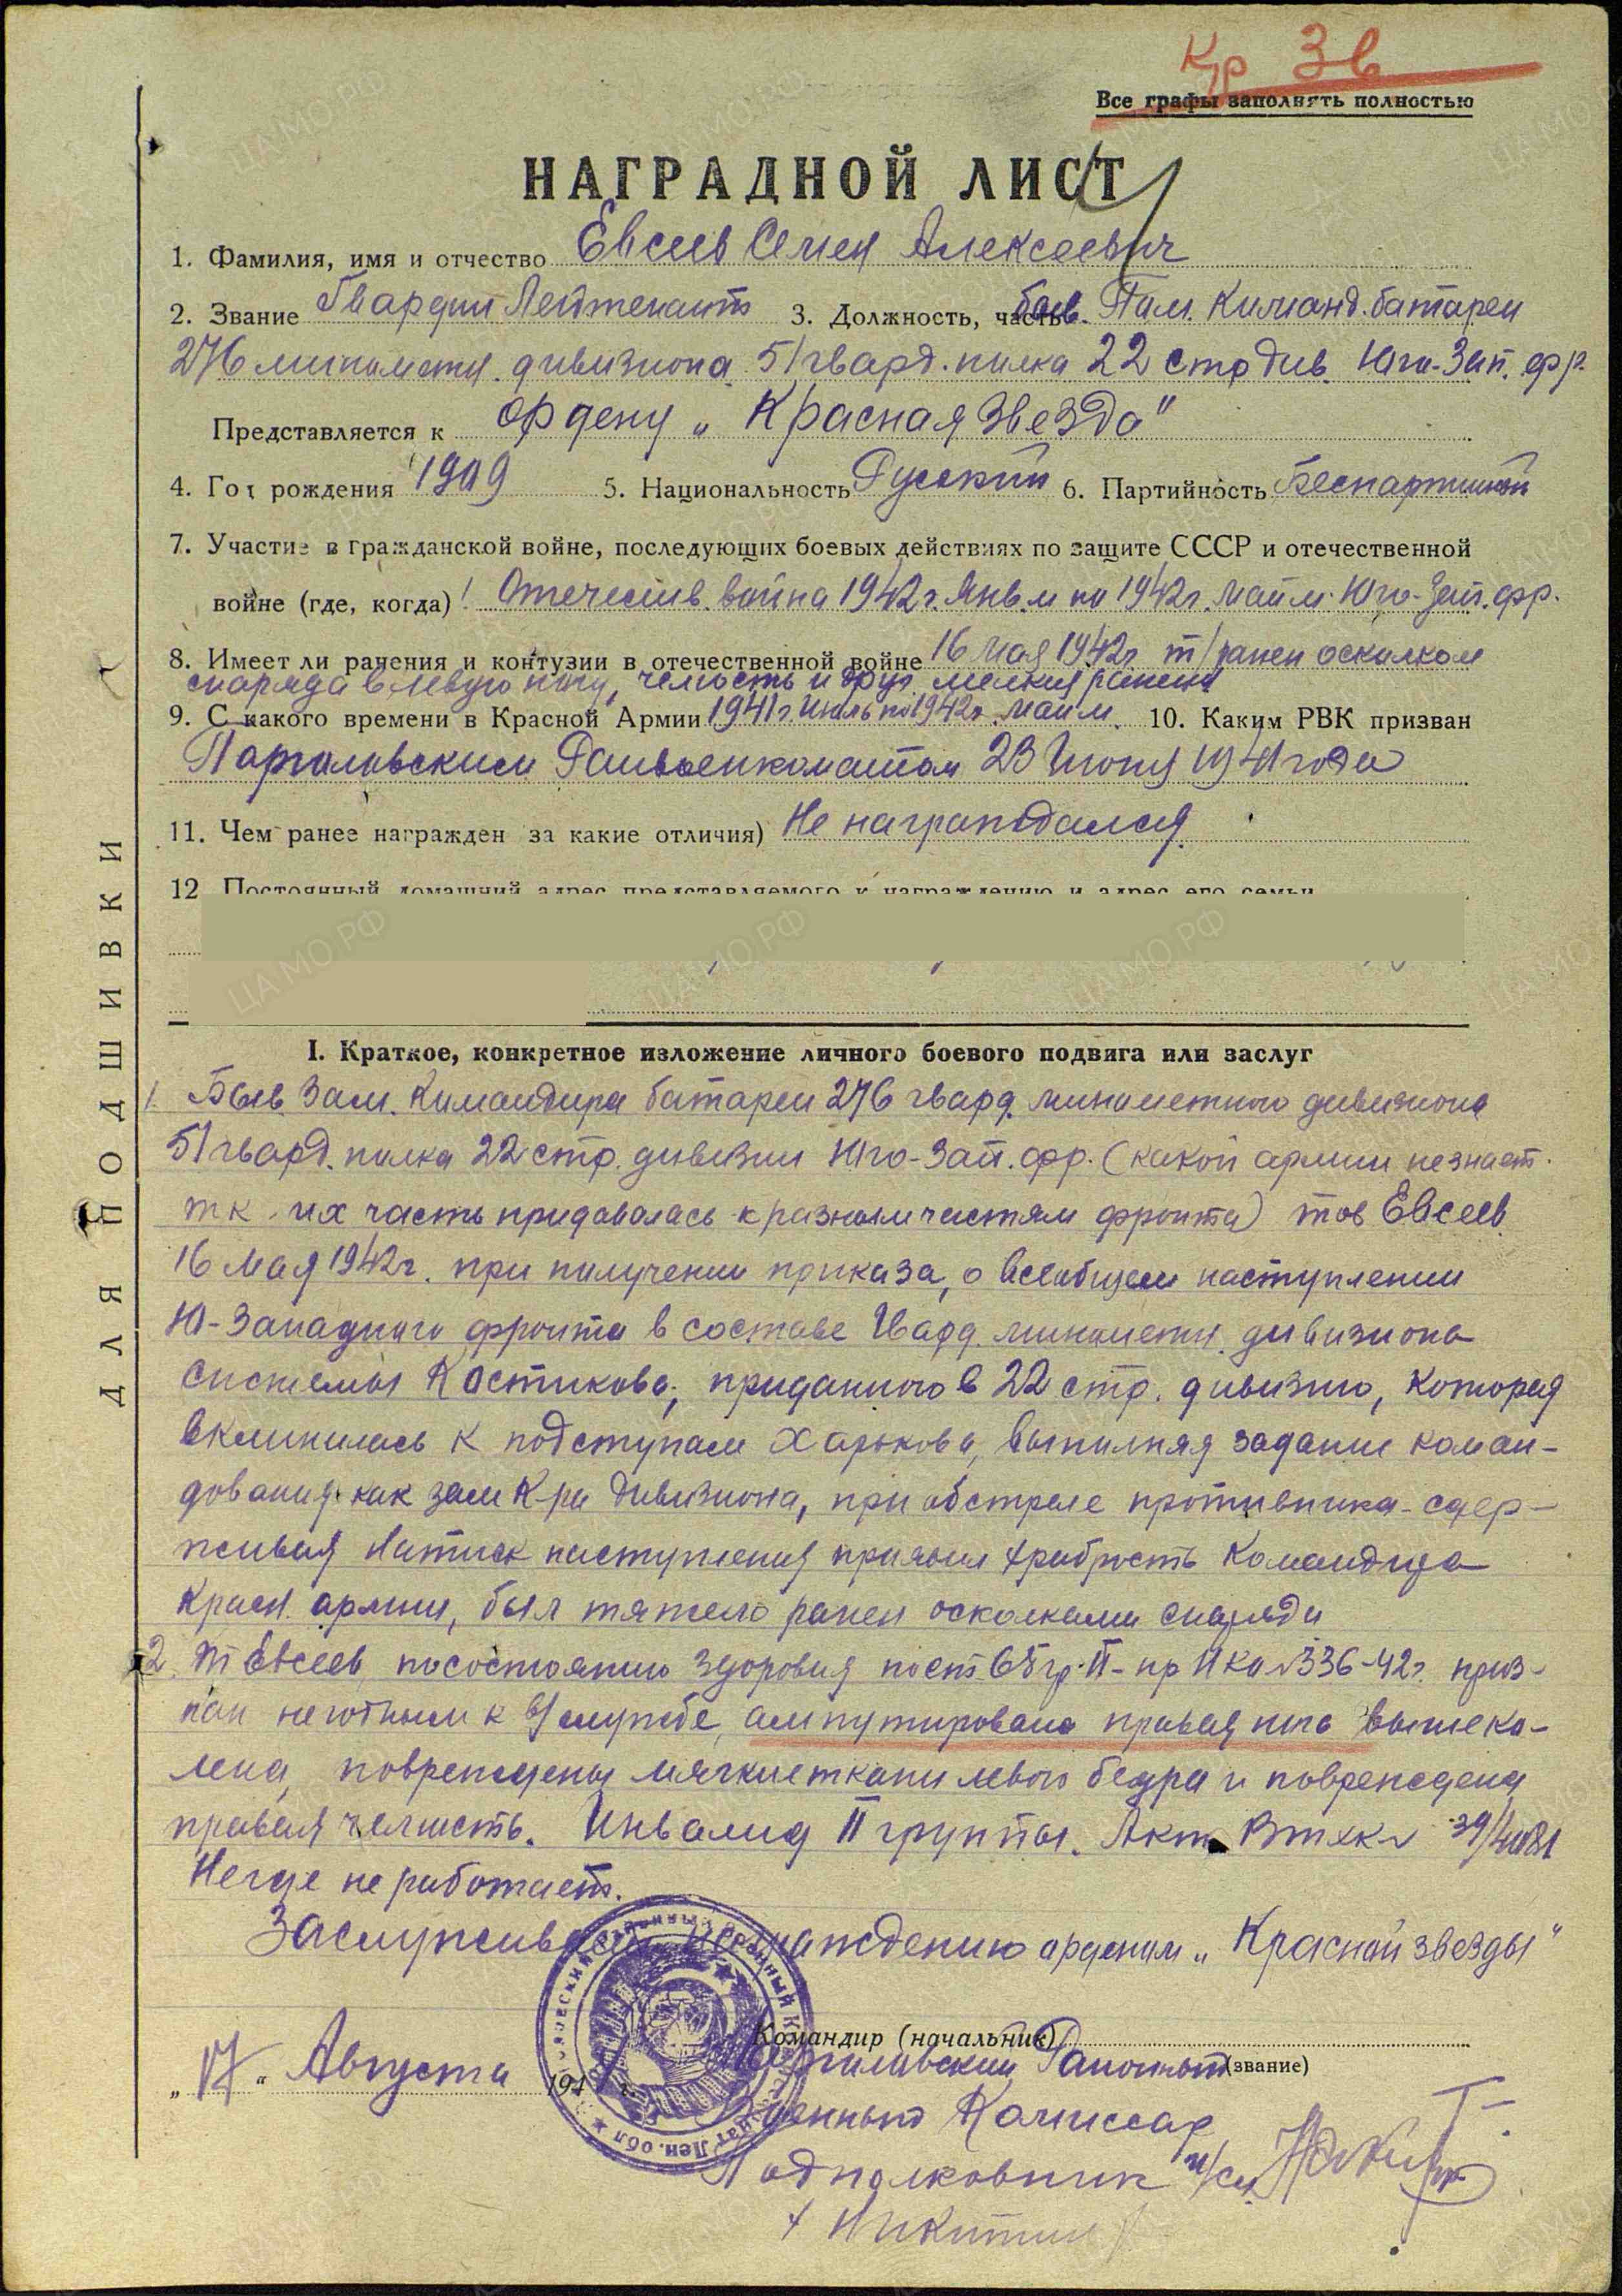 Кр Зв
Все графы заполнять полностью
НАГРАДНОЙ ЛИСТ
1. Фамилия, имя и отчество Евсеев Семен Алексеевич
2. Звание Гвардии Лейтенант 3. Должность, часть бывш. Пом. Команд. батареи
276 минометн. дивизиона 51 гвард. полка 22 стр див. Юго-Зап. фр.
Представляется к ордену „Красная Звезда"
4. Год рождения 1909 5. Национальность Русский 6. Партийность Беспартийный
7. Участие в гражданской войне, последующих боевых действиях по защите СССР и отечественной
войне (где, когда) Отечеств. война 1942 г. Янв. м по 1942 г. май м. Юго-Зап. фр.
8. Имеет ли ранения и контузии в отечественной войне 16 мая 1942 г. т/ранен осколком
снаряда в левую ногу, челюсть и друг. мелкия ранения
9. С какого времени в Красной Армии 1941 г. Июль по 1942 г. май м. 10. Каким РВК призван
Парголовским Райвоенкоматом 23 Июня 1941 года
11. Чем ранее награжден за какие отличия) Не награждался
12 Постоянный домашний адрес представляемого к награждению и адрес его семьи
I. Краткое, конкретное изложение личного боевого подвига или заслуг
1. Бывш. Зам. Командира батареи 276 гвард. минометного дивизиона
51 гвард. полка 22 стр. дивизии Юго-Зап. фр. (какой армии не знает.
т к. их часть придавалась к разным частям фронта) тов Евсеев
16 мая 1942 г. при получении приказа, о всеобщем наступлении
Ю-Западного фронта в составе Гвард. минометн. дивизиона
системы Костикова, приданного в 22 стр. дивизию, которая
вклинилась к подступам Харькова, выполняя задание коман-
дования как зам К-ра дивизиона, при обстреле противника - сдер-
живая натиск наступления проявил храбрость Командира
Красн. армии, был тяжело ранен осколками снаряда
2. т Евсеев по состоянию здоровья по ст 65 гр. II - пр НКО №336-42 г. приз-
нан негодным к в/службе, ампутирована правая нога выше ко-
лена, повреждены мягкие ткани левого бедра и повреждена
правая челюсть. Инвалид II группы. Акт Втэк №
Негде не работает.
Заслуживает награждению орденом „Красной звезды"
Командир (начальник)
„17" Августа 194 г. Парголовский Районный (звание)
Военный Комиссар
Подполковник и/сл
Никитин
Лен. обл
ДЛЯ ПОДШИВКИ
ЦАМО.РФ